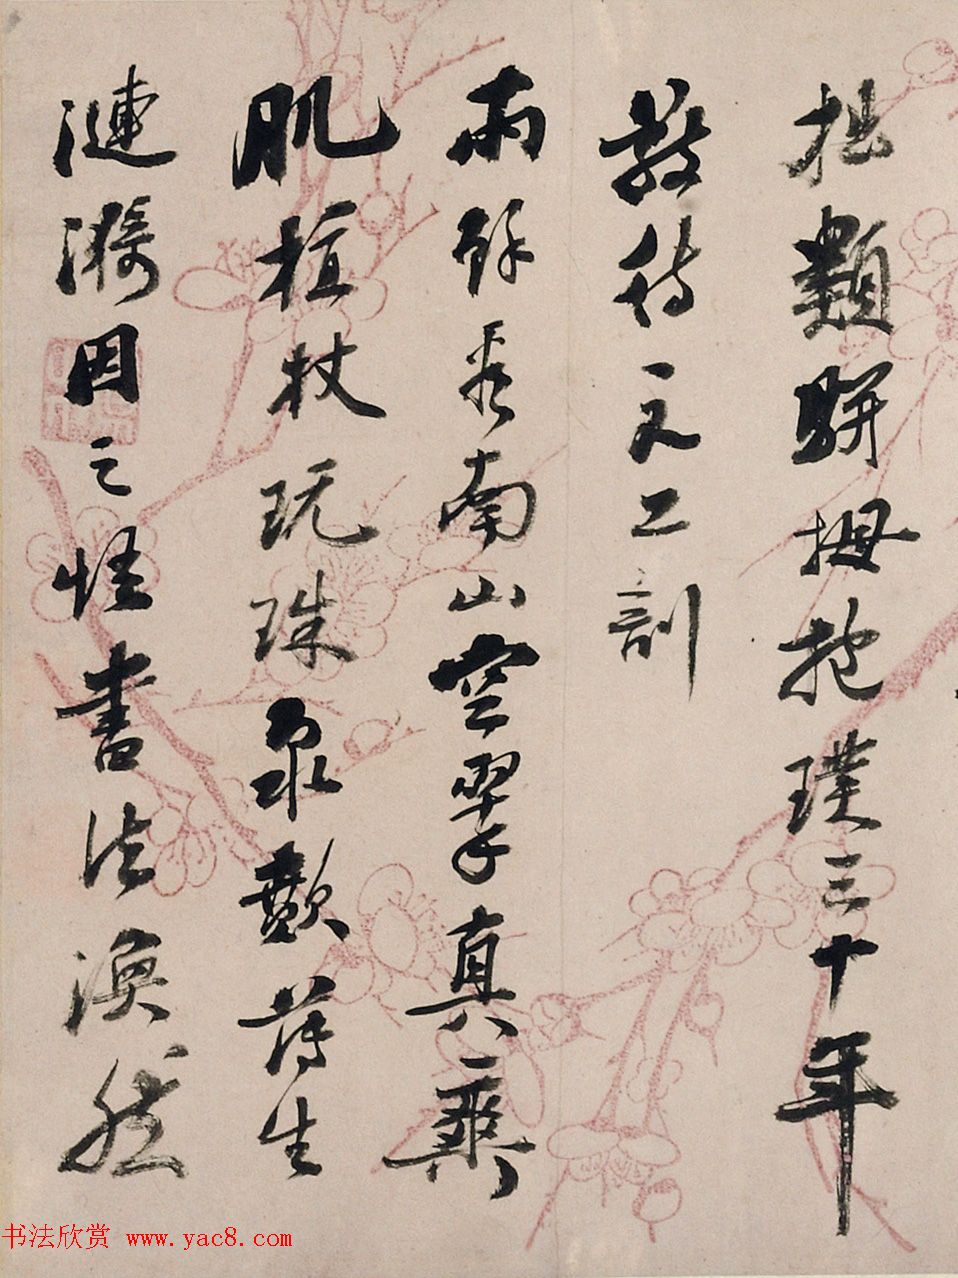 拙類駢拇抱璞三十年
敬待天工剖
雨餘看南山空翠真爽
肌植杖玩珠泉歕薄生
漣漪因之悟書法渙然
书法欣赏 www.yac8.com